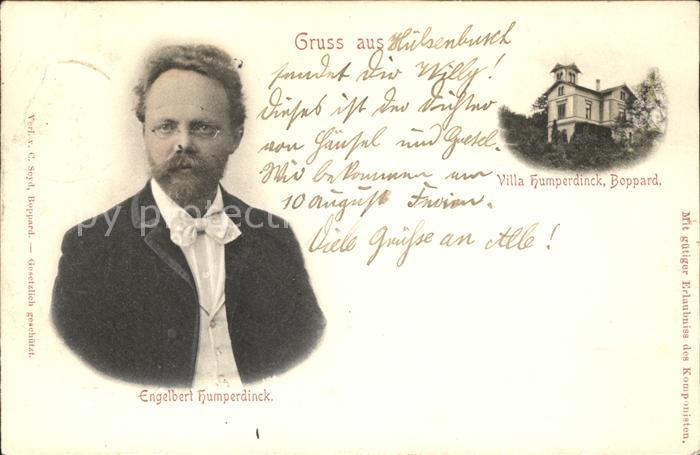 Gruss aus Hülsenbusch
sendet Dir Willy!
Dieses ist der Dichter
von Hänsel und Gretel.
Wir bekommen am
10 August Ferien.
Viele Grüsse an Alle!
Villa Humperdinck, Boppard.
Engelbert Humperdinck.
Verl. v. C. Seyd, Boppard. — Gesetzlich geschützt.
Mit gütiger Erlaubniss des Komponisten.